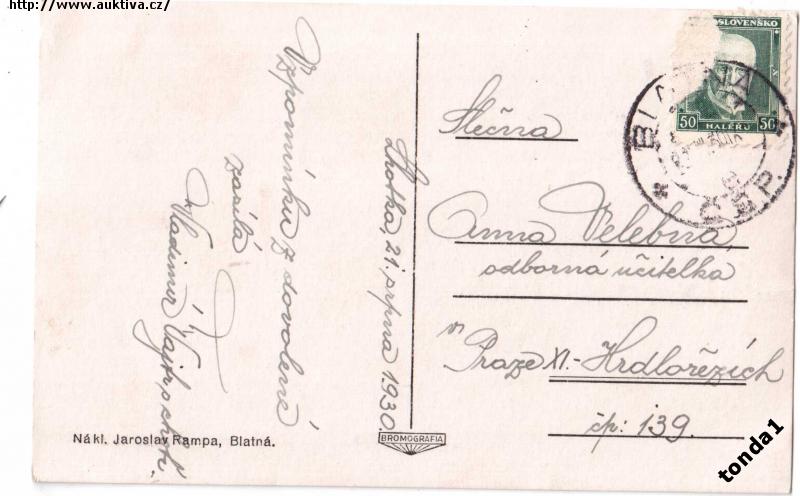 http://www.auktiva.cz/
Vzpomínku z dovolené
zasílá
Vladimír
Lhotka, 21. srpna 1930.
Slečna
Anna Velebná,
odborná učitelka
v
Praze XI.-Hrdlořezích
čp: 139.
OSLOVENSKO
50 HALÉŘŮ 50
BLATNÁ
ČSP.
Nákl. Jaroslav Rampa, Blatná.
BROMOGRAFIA
tonda1